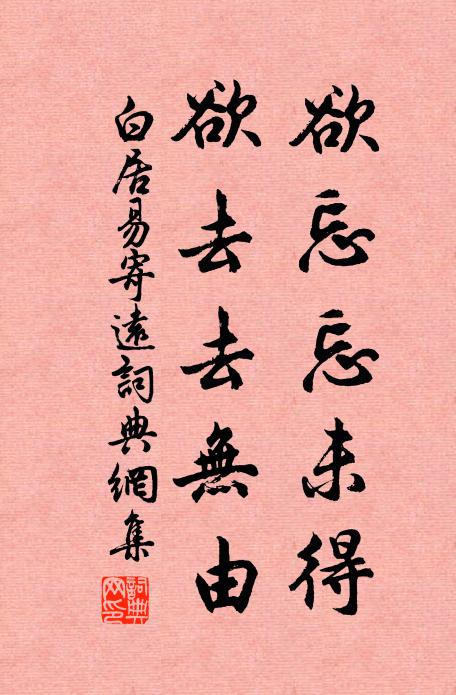 欲忘忘未得
欲去去無由
白居易寄遠詞典網集
詞典網印